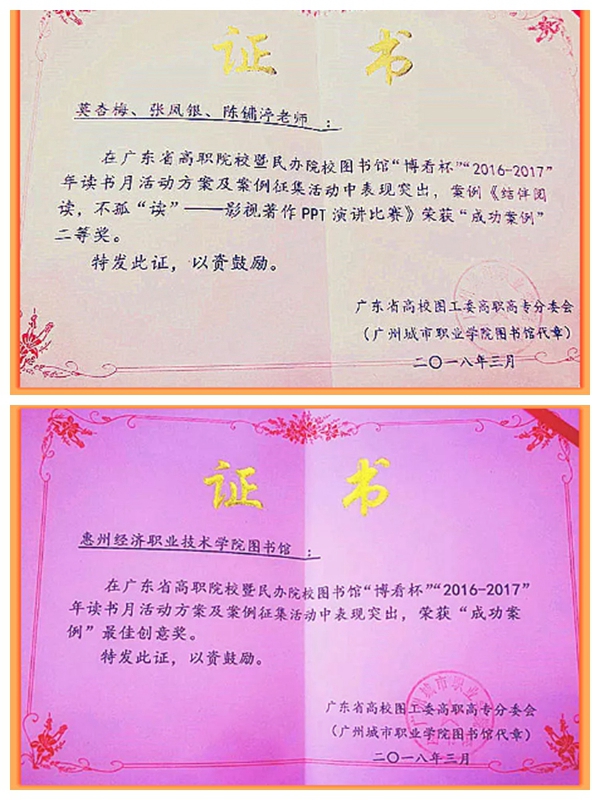 证 书
莫杏梅、张凤银、陈镛渟老师：
在广东省高职院校暨民办院校图书馆“博看杯”“2016-2017”
年读书月活动方案及案例征集活动中表现突出，案例《结伴阅
读，不孤“读”——影视著作PPT演讲比赛》荣获“成功案例”
二等奖。
特发此证，以资鼓励。
广东省高校图工委高职高专分委会
（广州城市职业学院图书馆代章）
二〇一八年三月
证 书
惠州经济职业技术学院图书馆：
在广东省高职院校暨民办院校图书馆“博看杯”“2016-2017”
年读书月活动方案及案例征集活动中表现突出，荣获“成功案
例”最佳创意奖。
特发此证，以资鼓励。
广东省高校图工委高职高专分委会
（广州城市职业学院图书馆代章）
二〇一八年三月